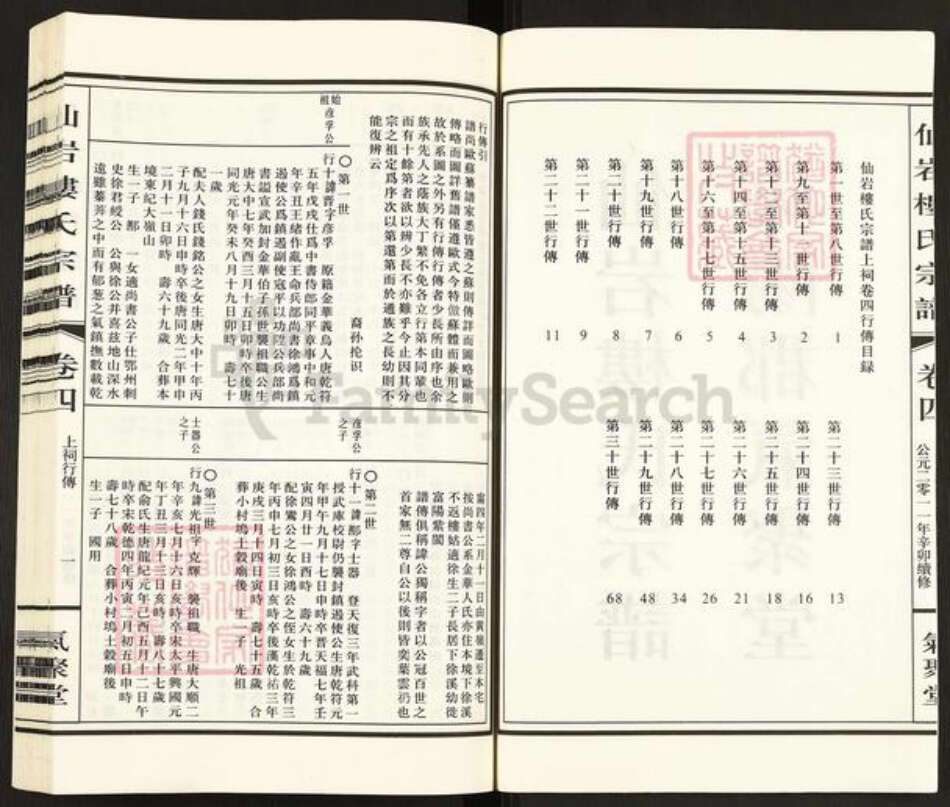 仙岩樓氏宗譜
卷四
公元二零一一年辛卯續修
氣聚堂
仙岩樓氏宗譜上祠卷四行傳目録
第一世至第八世行傳 1
第九至第十一世行傳 2
第十二至第十三世行傳 3
第十四至第十五世行傳 4
第十六至第十七世行傳 5
第十八世行傳 6
第十九世行傳 7
第二十世行傳 8
第二十一世行傳 9
第二十二世行傳 11
第二十三世行傳 13
第二十四世行傳 16
第二十五世行傳 18
第二十六世行傳 21
第二十七世行傳 26
第二十八世行傳 34
第二十九世行傳 48
第三十世行傳 68
FamilySearch
仙岩樓氏宗譜
卷四
上祠行傳
一
氣聚堂
行傳引
譜尚歐蘇纂譜家悉皆遵之蘇則傳詳而圖略歐則
傳略而圖詳舊譜僅遵歐式今特倣蘇體而兼用之
故於系圖之外另有行傳行傳者少長所由序也余
族承先人之蔭族大丁繁不免各立行第本同輩也
而有十餘第者欲以辨少長不亦難乎今止因其分
宗之祖定爲序次以第還第而於通族之長幼則不
能復辨云
裔孫抡识
始祖彦孚公
○第一世
行十諱晋字彦孚 原籍金華義烏人唐乾符
五年戊戌仕爲中書侍郎同平章事中和元
年辛丑王緒作亂王命兵部尚書徐鴻爲鎮
遏使公爲鎮遏副使寇平以功陞公兵部尚
書謚宣武加封金華伯子孫世襲祖職公生
唐大中七年癸酉三月十五日卯時卒後唐
同光元年癸未八月十九日卯時 壽七十
一歲
配夫人錢氏錢銘公之女生唐大中十年丙
子九月十六日申時卒後唐同光二年甲申
二月十一日卯時 壽六十九歲 合葬本
境東紀大嶺山
生一子 鄢 一女適尚書公子仕鄂州刺
史徐君綬公 公與徐公并喜兹地山深水
遠雖蓁莠之中而有郁葱之氣鎮撫數載乾
寧四年二月十一日由黄嶺遷至本宅
按尚書公系金華人氏亦住本境下徐溪
不返樓姑適徐生二子長居下徐溪幼徙
富陽紫閬
譜傳俱稱諱公獨稱字者以公冠百世之
首家無二尊自公以後則皆奕葉雲礽也
彦孚公之子
○第二世
行十一諱鄢字士器 登天復三年武科第一
授武庫校尉仍襲封鎮遏使公生唐乾符元
年甲午九月十七日申時卒晋天福七年壬
寅四月廿一日酉時 壽六十九歲
配徐鴬公之女徐鴻公之侄女生於乾符三
年丙申七月初三日亥時卒後漢乾祐三年
庚戌三月十四日寅時 壽七十五歲 合
葬小村塢土穀廟後 生一子 光祖
士器公之子
○第三世
行九諱光祖字克輝 襲祖職 生唐大順二
年辛亥七月十六日亥時卒宋太平興國元
年丁丑三月十三日亥時 壽八十七歲
配俞氏生唐龍紀元年己酉五月十二日午
時卒宋乾德四年丙寅二月初五日申時
壽七十八歲 合葬小村塢土穀廟後
生一子 國用